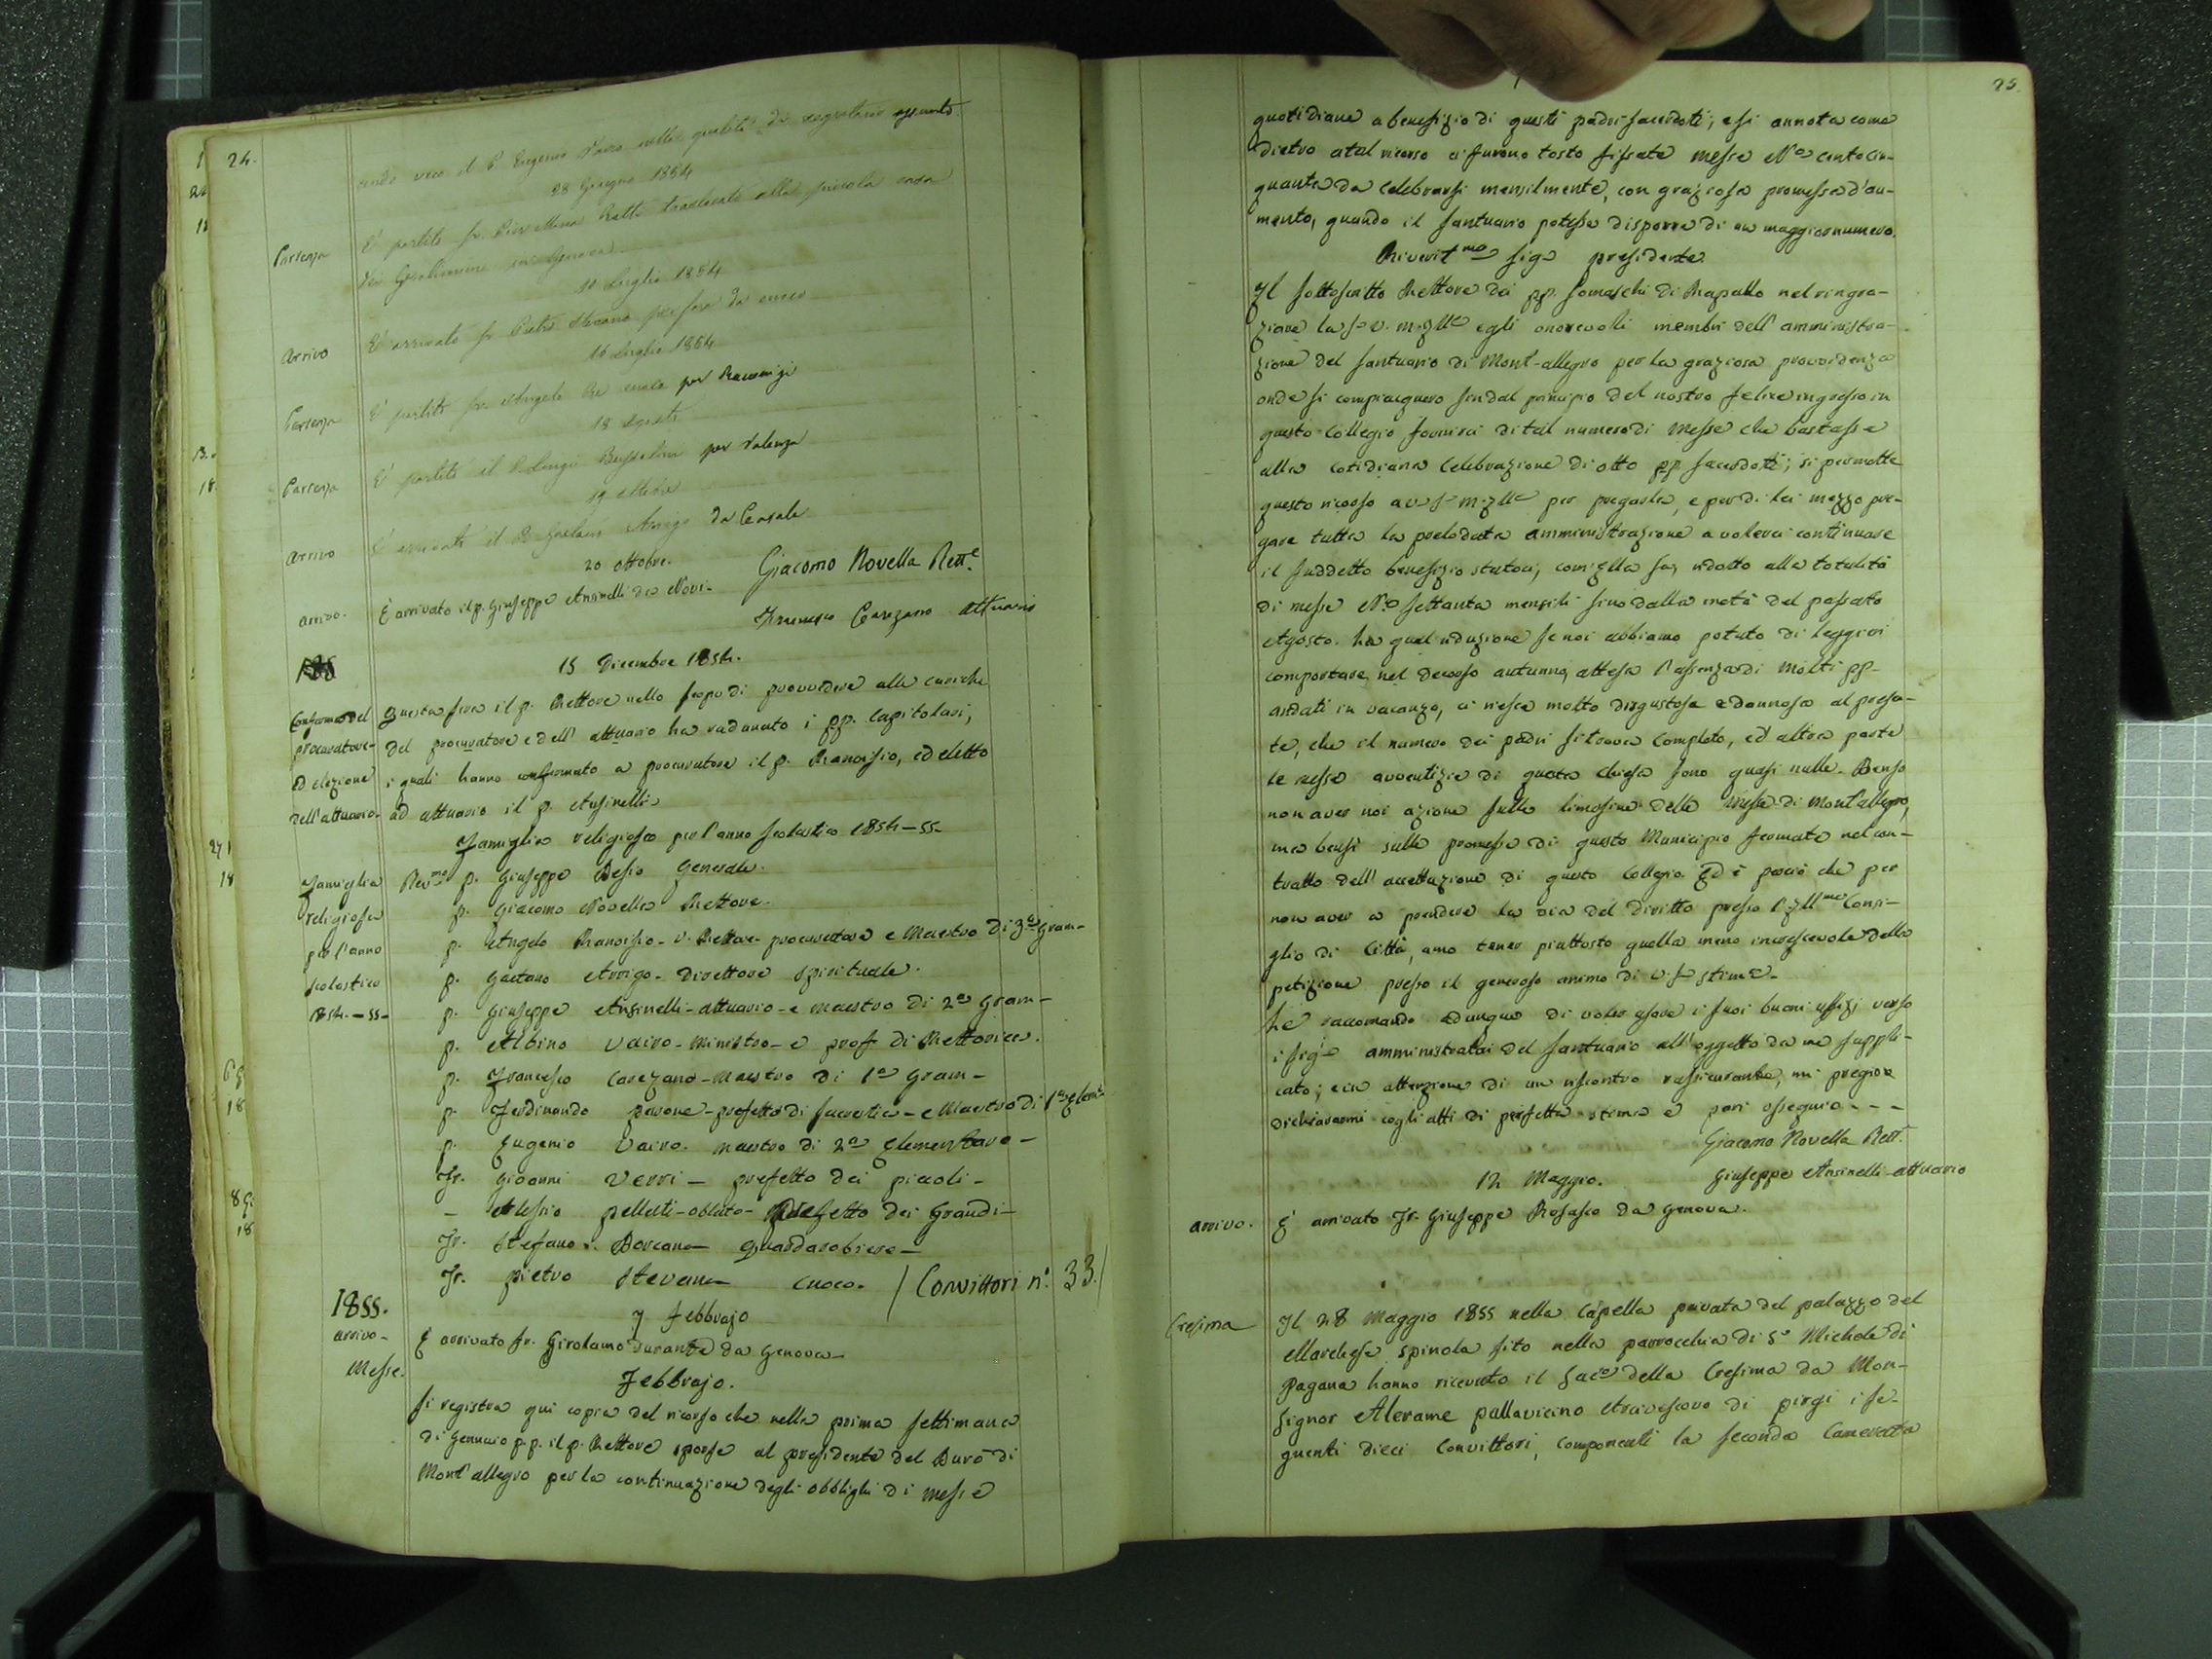 24.
28 Giugno 1854
Partenza
È partito fr. traslocato alla piccola casa
di in Genova.
10 Luglio 1854
Arrivo
È arrivato fr. Pietro Stevana da cuoco
16 Luglio 1854
Partenza
È partito fr. Angelo Re cuoco per Racconigi
18 Agosto
Partenza
È partito il P. Luigi per Valenza
19 ottobre
Arrivo
È arrivato il P. Gaetano Arrigo da Casale
20 ottobre.
Giacomo Novella Rett.e
arrivo.
È arrivato il p. Giuseppe Ansinelli da Novi.
Francesco Carezano attuario
15 Dicembre 1854.
Conferma del procuratore ed elezione dell'attuario.
Questa sera il p. Rettore nello scopo di provvedere alle cariche
del procuratore e dell'attuario ha radunato i pp. Capitolari,
i quali hanno confermato a procuratore il p. Rancisio, ed eletto
ad attuario il p. Ansinelli
Famiglia religiosa per l'anno scolastico 1854-55-
Famiglia religiosa per l'anno scolastico 1854.-55-
Rev.mo p. Giuseppe Besio Generale.
p. Giacomo Novella Rettore.
p. Angelo Rancisio - V. Rettore - procuratore e Maestro di 3.a gram-
p. Gaetano Arrigo - Direttore spirituale.
p. Giuseppe Ansinelli - attuario - e maestro di 2.a gram-
p. Albino Vairo - Ministro - e prof. di Rettorica.
p. Francesco Carezano - Maestro di 1.a gram-
p. Ferdinando pavone - prefetto di sacrestia - e Maestro di 1.a Elem.e
p. Eugenio Vairo. maestro di 2.a Elementare -
Fr. Gioanni Verri - prefetto dei piccoli -
- Alessio pelleti - oblato - prefetto dei Grandi -
Fr. Stefano Borcana - Guardarobiere -
Fr. pietro Stevana - Cuoco. / Convittori n.° 33./
1855.
7 Febbrajo
arrivo -
È arrivato fr. Girolamo Durante da Genova -
Febbrajo.
Messe.
Si registra qui copia del ricorso che nella prima settimana
di Gennaio p. p. il p. Rettore sporse al presidente del Burò di
Mont'allegro per la continuazione degli obblighi di messe
25.
quotidiane a benefizio di questi padri sacerdoti, e si annota come
dietro a tal ricorso ci furono tosto fissate messe N.o centocin-
quanta da celebrarsi mensilmente, con graziosa promessa d'au-
mento, quando il santuario potesse disporre di un maggior numero.
Riverit.mo sig.e presidente
Il sottoscritto Rettore dei pp. Somaschi di Rapallo nel ringra-
ziare la S.a V. m. Ill.e e gli onorevoli membri dell'amministra-
zione del santuario di Mont-allegro per la graziosa provvidenza
onde si compiacquero sin dal principio del nostro felice ingresso in
questo Collegio fornirci di tal numero di messe che bastasse
alla cotidiana celebrazione di otto pp. sacerdoti; si permette
questo ricorso a V. S.a m. Ill.e per pregarla, e per di lei mezzo pre-
gare tutta la prelodata amministrazione a volerci continuare
il suddetto benefizio statoci, com'Ella sa, ridotto alla totalità
di messe N.o settanta mensili sino dalla metà del passato
Agosto. La qual riduzione se noi abbiamo potuto di leggieri
comportare nel decorso autunno, attesa l'assenza di molti pp.
andati in vacanza, ci riesce molto disgustosa e dannosa al presen-
te, che il numero dei padri si trova completo, ed altra parte
le messe avventizie di questa chiesa sono quasi nulle. Benso
non aver noi azione sulle limosine delle messe di Mont'allegro,
ma bensì sulle promesse di questo Municipio fermate nel con-
tratto dell'accettazione di questo Collegio. Ed è perciò che per
non aver a prendere la via del diritto presso l'Ill.mo Consi-
glio di Città, amo tener piuttosto quella meno increscevole della
petizione presso il generoso animo di V. S. stim.a -
Le raccomando adunque di voler usare i suoi buoni uffizi verso
i sig.i amministratori del santuario all'oggetto da me suppli-
cato; e in attenzione di un riscontro rassicurante, mi pregio
dichiararmi cogli atti di perfetta stima e pari ossequio - - -
Giacomo Novella Rett.
12 Maggio.
Giuseppe Ansinelli - attuario
arrivo.
È arrivato Fr. Giuseppe Rosasco da Genova.
Cresima
Il 28 Maggio 1855 nella Capella privata del palazzo del
Marchese Spinola sito nella parrocchia di S.o Michele di
Pagana hanno ricevuto il Sac.o della Cresima da Mon-
signor Alerame pallavicino Arcivescovo di pirgi i se-
guenti dieci Convittori, componenti la seconda Camerata